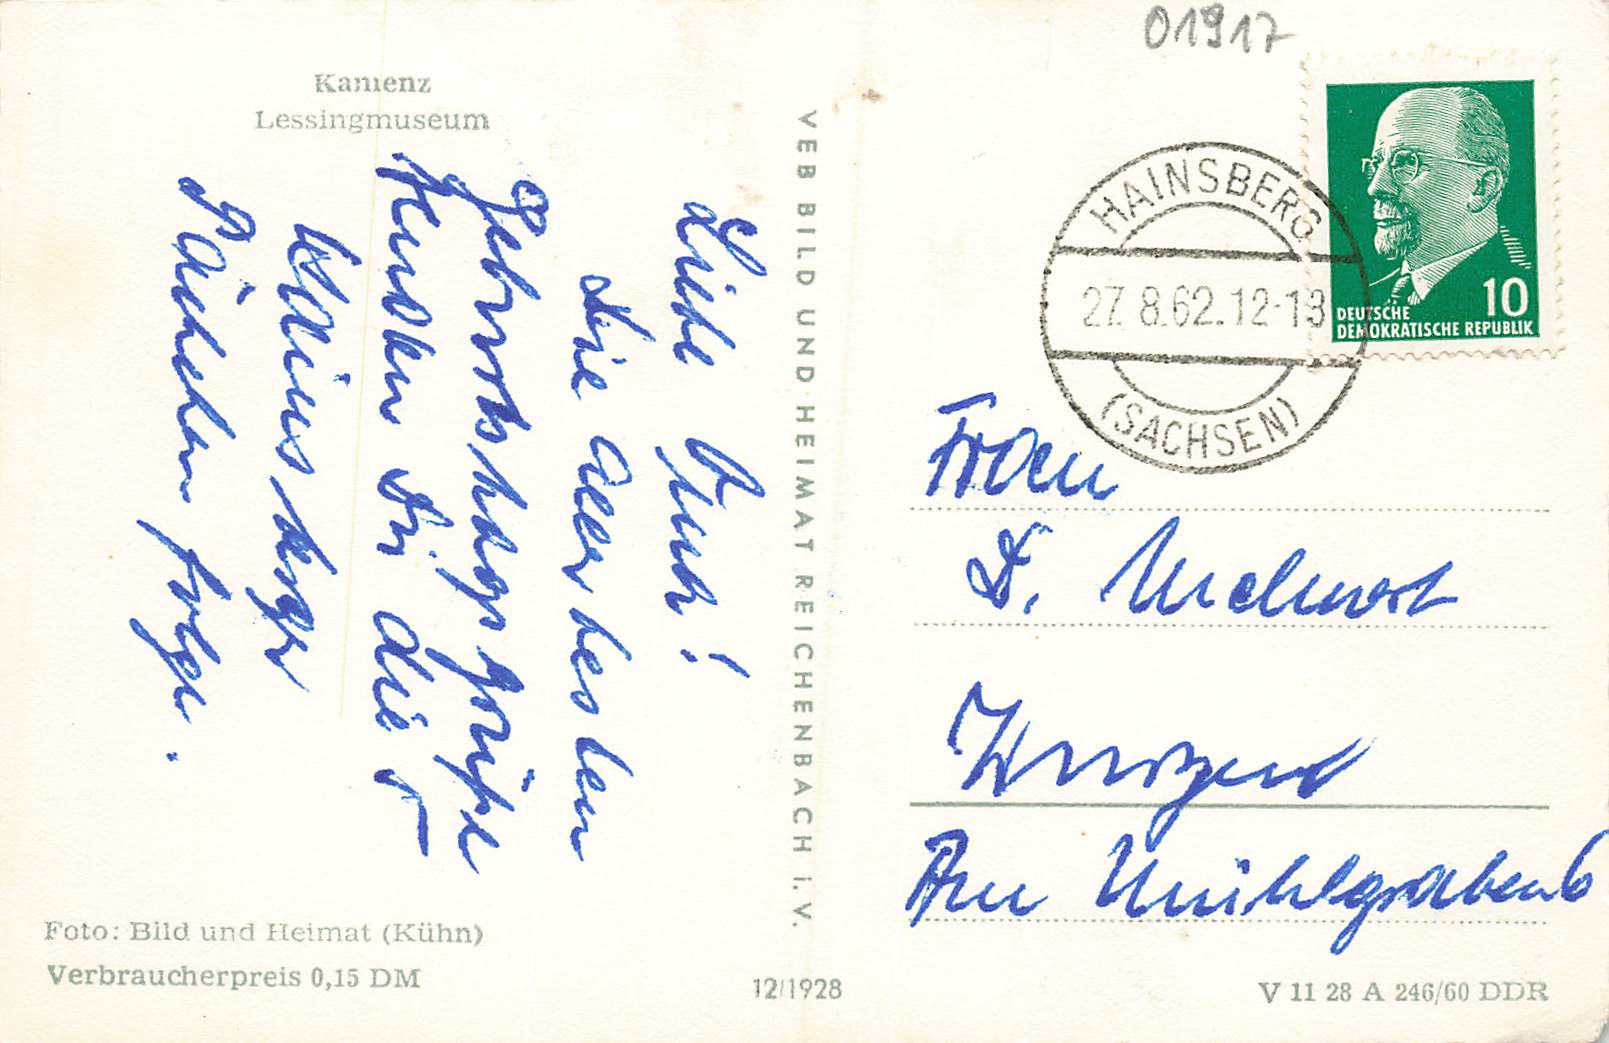 01917
Kamenz
Lessingmuseum
Liebe Ruth!
Die allerbesten
Geburtstagsgrüße
senden Dir die 5
Kleins
Päckchen folgt.
VEB BILD UND HEIMAT REICHENBACH i. V.
HAINSBERG
27.8.62.12-13
(SACHSEN)
10
DEUTSCHE
DEMOKRATISCHE REPUBLIK
Frau
Wurzen
Am Mühlgraben 6
Foto: Bild und Heimat (Kühn)
Verbraucherpreis 0,15 DM
12/1928
V 11 28 A 246/60 DDR